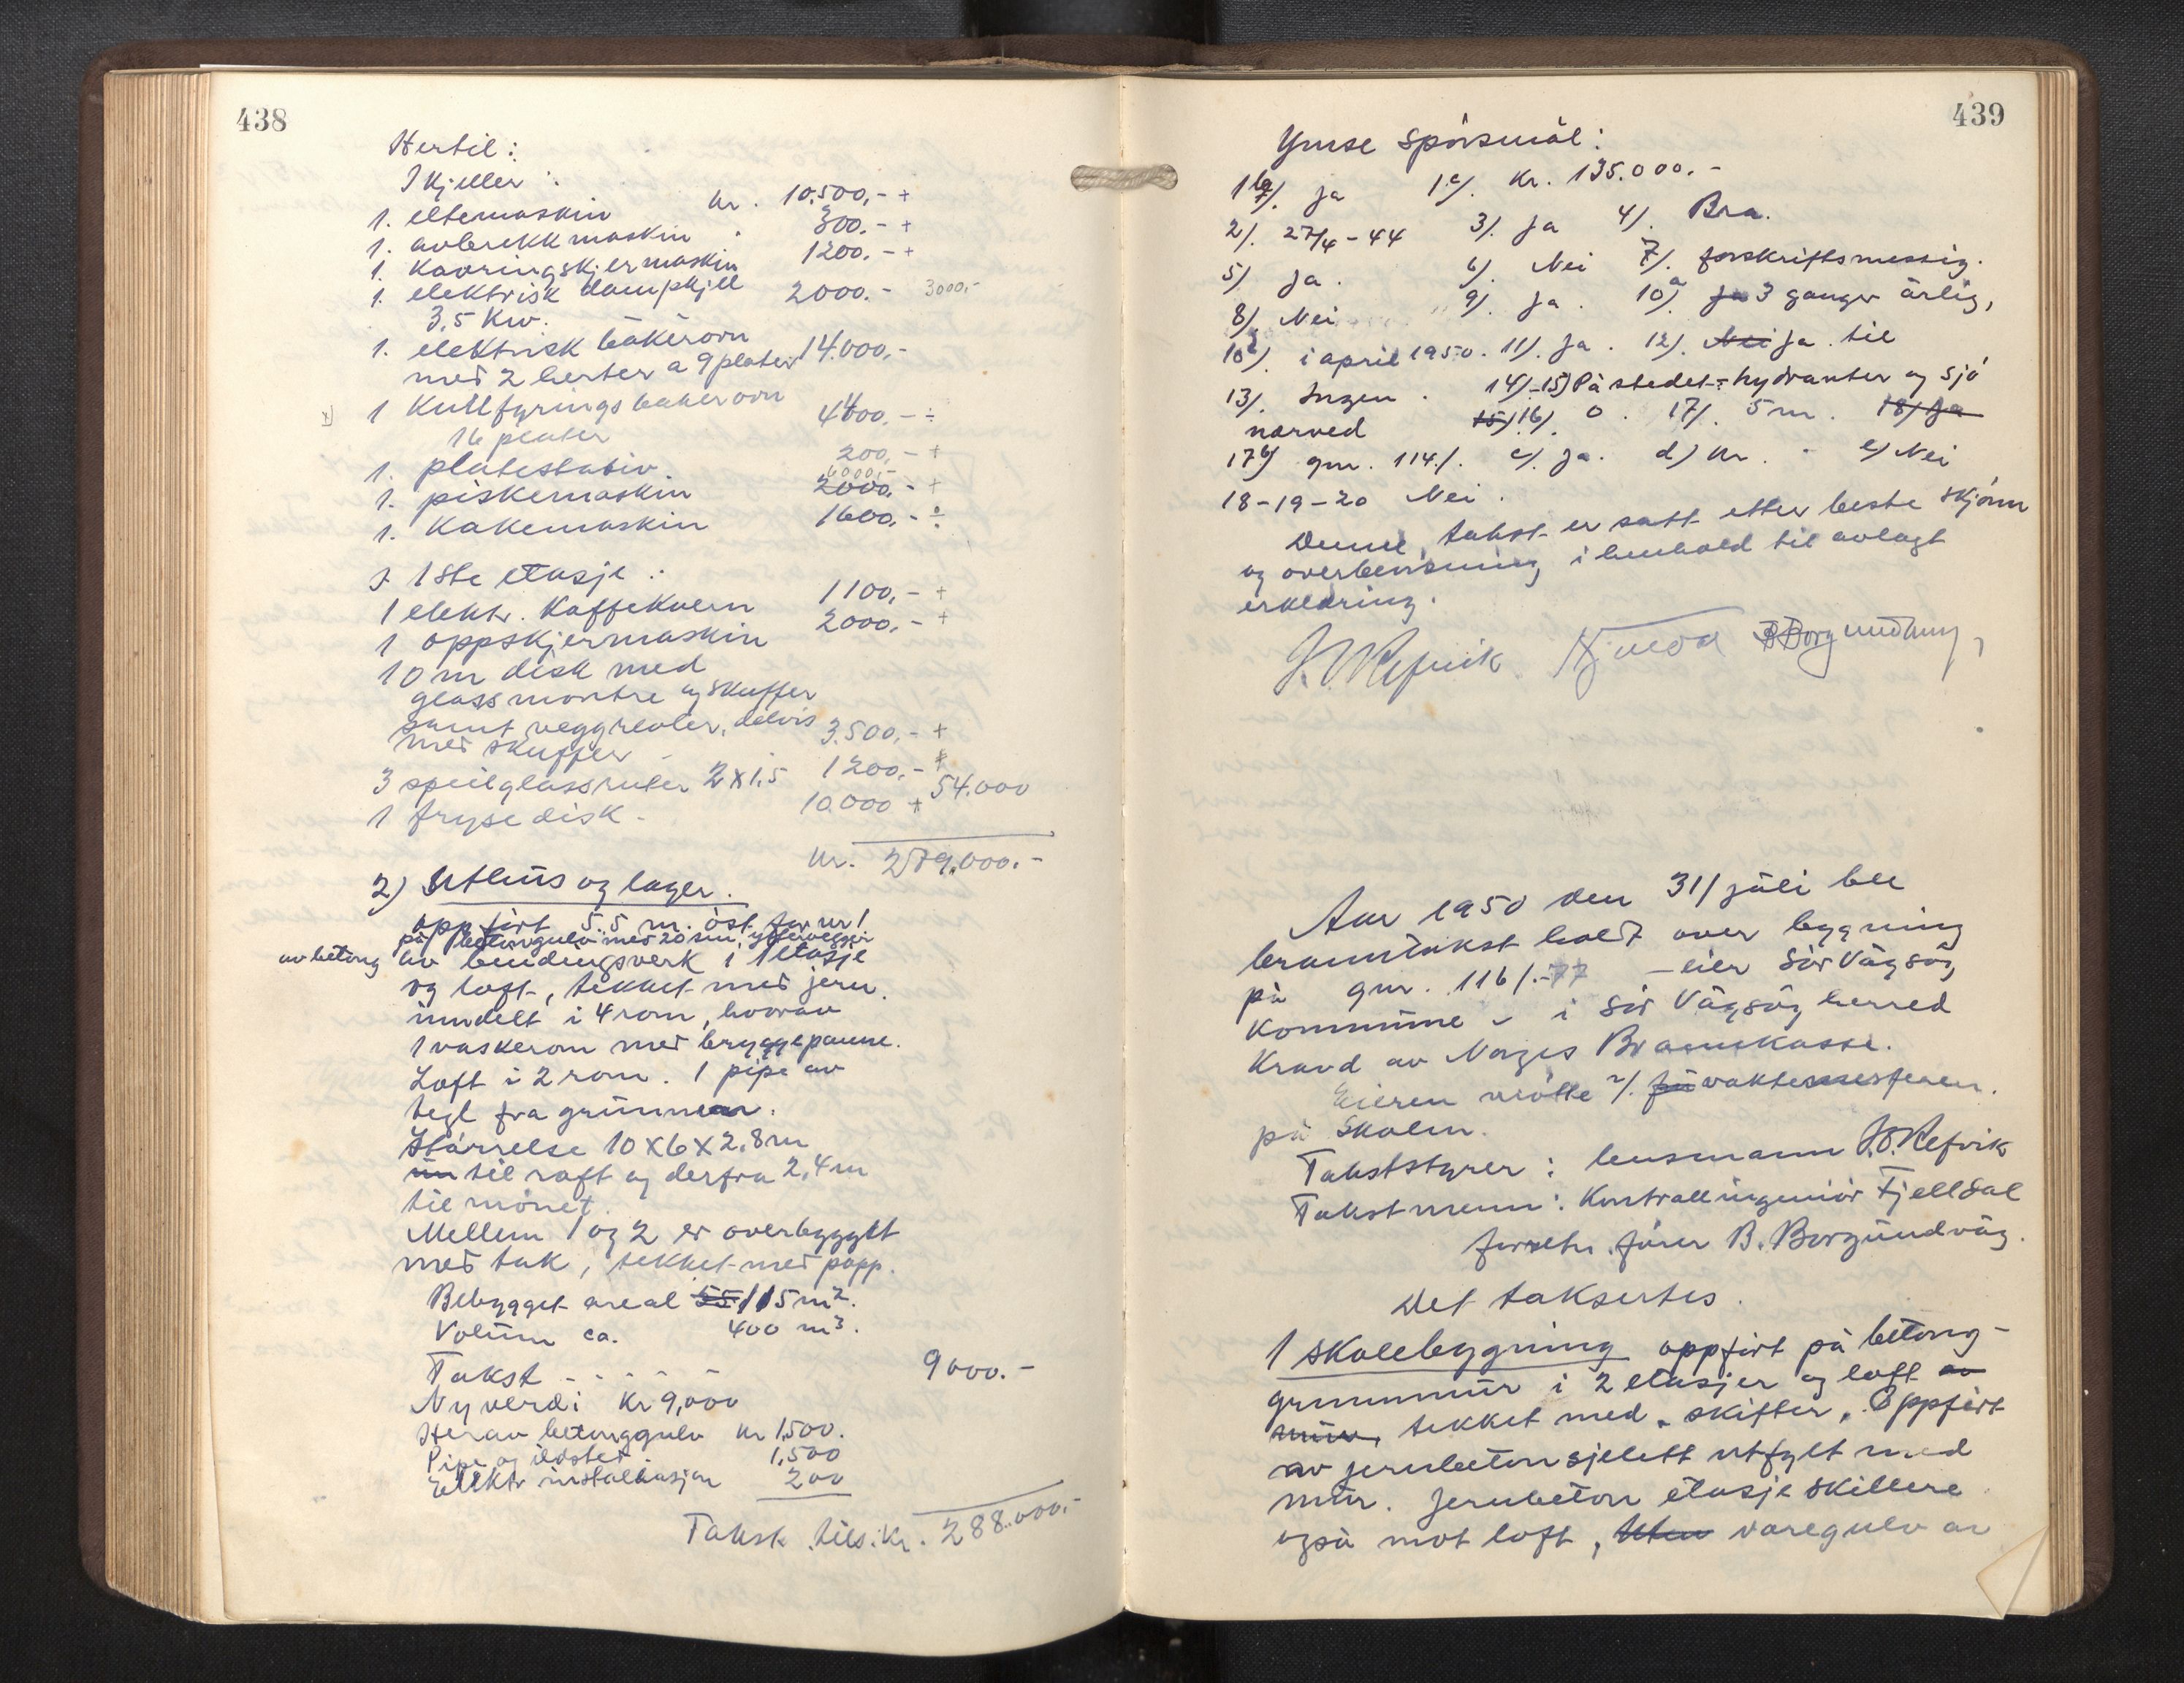 438
Hertil:
I kjeller:
1. eltemaskin kr. 10.500,- +
1. avbrekkmaskin " 300.- +
1. Kavringskjermaskin 1200.- +
1. elektrisk dampkjell 2000.- 3000,-
3,5 Kw.
1. elektrisk bakerovn 14.000,-
med 2 herter a 9 plater
1 Kullfyringsbakerovn 4400,- ÷
16 plater
1. platestativ. 200,- +
6000,-
1. piskemaskin 2000,- +
1. Kakemaskin 1600,- ÷
I 1ste etasje:
1 elektr. Kaffekvern 1100,- +
1 oppskjermaskin 2000,- +
10 m disk med
glassmontre og skuffer
samt veggreoler, delvis
med skuffer - 3.500,- +
3 speilglassruter 2 x 1,5 1200,- +
1 frysedisk - 10.000 + 54.000
kr. 279.000.-
2) Uthus og lager.
oppført 5.5 m. øst for nr 1
på betongulv med 20 mm yttervegger
av betong av bindingsverk i 1 etasje
og loft, tekket med jern.
inndelt i 4 rom, hvorav
1 vaskerom med bryggepanne.
Loft i 2 rom. 1 pipe av
tegl fra grunnen.
Størrelse 10 x 6 x 2,8 m
til raft og derfra 2,4 m
til mønet.
Mellem 1 og 2 er overbyggt
med tak, tekket med papp.
Bebygget areal 55 115 m2.
Volum ca. 400 m3.
Takst - - - - - 9000.-
Nyverdi Kr 9,000
Herav betonggulv kr 1,500.
Pipe og ildsted 1,500
Elektr installasjon 200
Takst tils. kr. 288.000.-
439
Ymse spørsmål:
1b/. Ja 1c/. Kr. 135.000.-
2/. 27/4-44 3/. Ja 4/. Bra.
5/ Ja. 6/. Nei 7/. forskriftsmessig.
8/. Nei 9/. Ja. 10a/. Ja 3 ganger årlig,
10b/. i april 1950. 11/. Ja. 12/. Nei Ja. til
13/. Ingen. 14/-15/ På stedet: hydranter og sjø
nærved 15/ 16/. 0. 17/. 5 m. 18/ Ja
17b/ gnr. 114/. c/. Ja. d/ kr. - e/ Nei
18-19-20 Nei.
Denne takst er satt etter beste skjønn
og overbevisning i henhold til avlagt
erklæring.
J. O. Refvik B Borgundvåg
Aar 1950 den 31/ juli ble
branntakst holdt over bygning
på gnr. 116/.-77 - eier Sør Vågsøy
kommune - i Sør Vågsøy herred
Kravd av Norges Brannkasse.
Eieren møtte v/. vaktmesteren.
på Skolen.
Takststyrer: lensmann J.O. Refvik
Takstmenn: Kontrollingeniør Fjelldal
forretn. fører B. Borgundvåg.
Det taksertes.
1 skolebygning oppført på betong-
grunnmur i 2 etasjer og loft av
mur, tekket med skifter. Oppført
av jernbetonsjelett utfylt med
mur. Jernbeton etasjeskillere
også mot loft, Uten varegulv av